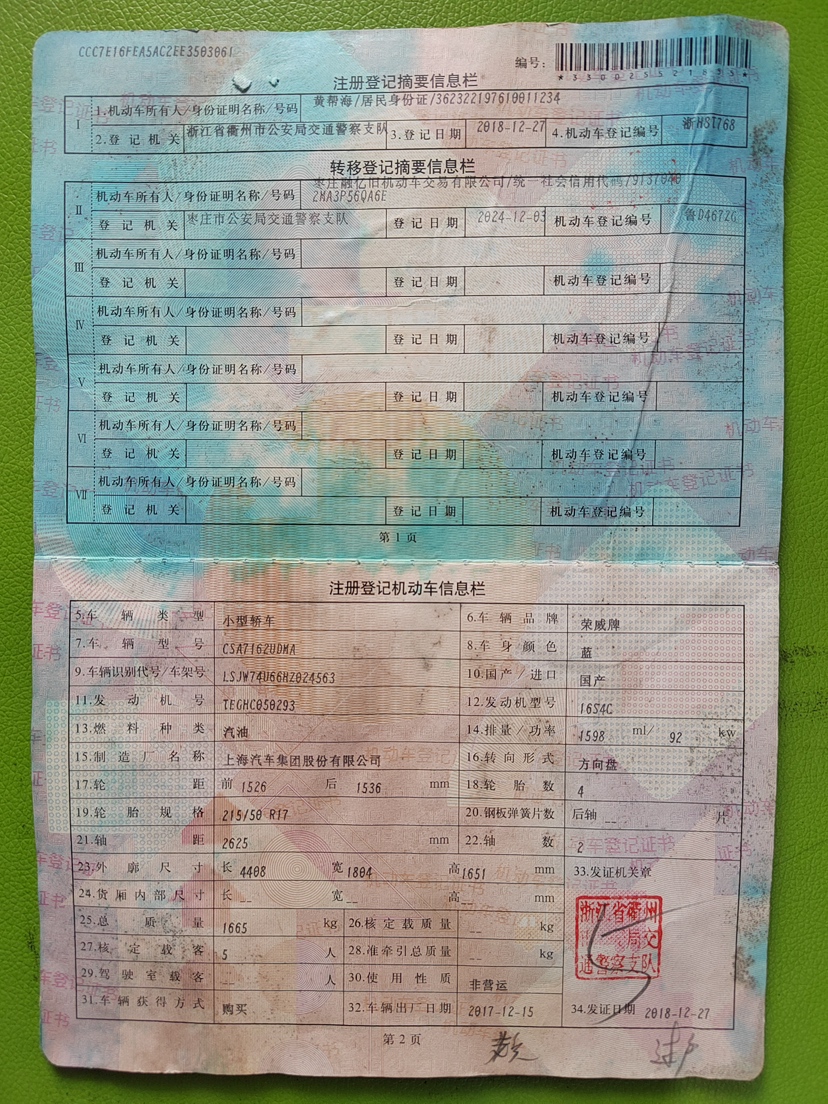 CCC7E16FEA5AC2EE3503061
编号：
*330025521835*
注册登记摘要信息栏
I 1.机动车所有人/身份证明名称/号码 黄帮海/居民身份证/362322197610011234
2.登记机关 浙江省衢州市公安局交通警察支队 3.登记日期 2018-12-27 4.机动车登记编号 浙HSI768
转移登记摘要信息栏
II 机动车所有人/身份证明名称/号码 枣庄融亿旧机动车交易有限公司/统一社会信用代码/9137040
2MA3P56QA6E
登记机关 枣庄市公安局交通警察支队 登记日期 2024-12-03 机动车登记编号 鲁D467ZG
III 机动车所有人/身份证明名称/号码
登记机关 登记日期 机动车登记编号
IV 机动车所有人/身份证明名称/号码
登记机关 登记日期 机动车登记编号
V 机动车所有人/身份证明名称/号码
登记机关 登记日期 机动车登记编号
VI 机动车所有人/身份证明名称/号码
登记机关 登记日期 机动车登记编号
VII 机动车所有人/身份证明名称/号码
登记机关 登记日期 机动车登记编号
第1页
注册登记机动车信息栏
5.车辆类型 小型轿车 6.车辆品牌 荣威牌
7.车辆型号 CSA7162UDMA 8.车身颜色 蓝
9.车辆识别代号/车架号 LSJW74U66HZ024563 10.国产/进口 国产
11.发动机号 TEGHC050293 12.发动机型号 16S4C
13.燃料种类 汽油 14.排量/功率 1598 ml/ 92 kw
15.制造厂名称 上海汽车集团股份有限公司 16.转向形式 方向盘
17.轮距 前 1526 后 1536 mm 18.轮胎数 4
19.轮胎规格 215/50 R17 20.钢板弹簧片数 后轴 -- 片
21.轴距 2625 mm 22.轴数 2
23.外廓尺寸 长 4408 宽 1804 高 1651 mm 33.发证机关章
24.货厢内部尺寸 长 -- 宽 -- 高 -- mm
浙江省衢州
局交
通警察支队
25.总质量 1665 kg 26.核定载质量 -- kg
27.核定载客 5 人 28.准牵引总质量 -- kg
29.驾驶室载客 -- 人 30.使用性质 非营运
31.车辆获得方式 购买 32.车辆出厂日期 2017-12-15 34.发证日期 2018-12-27
第2页